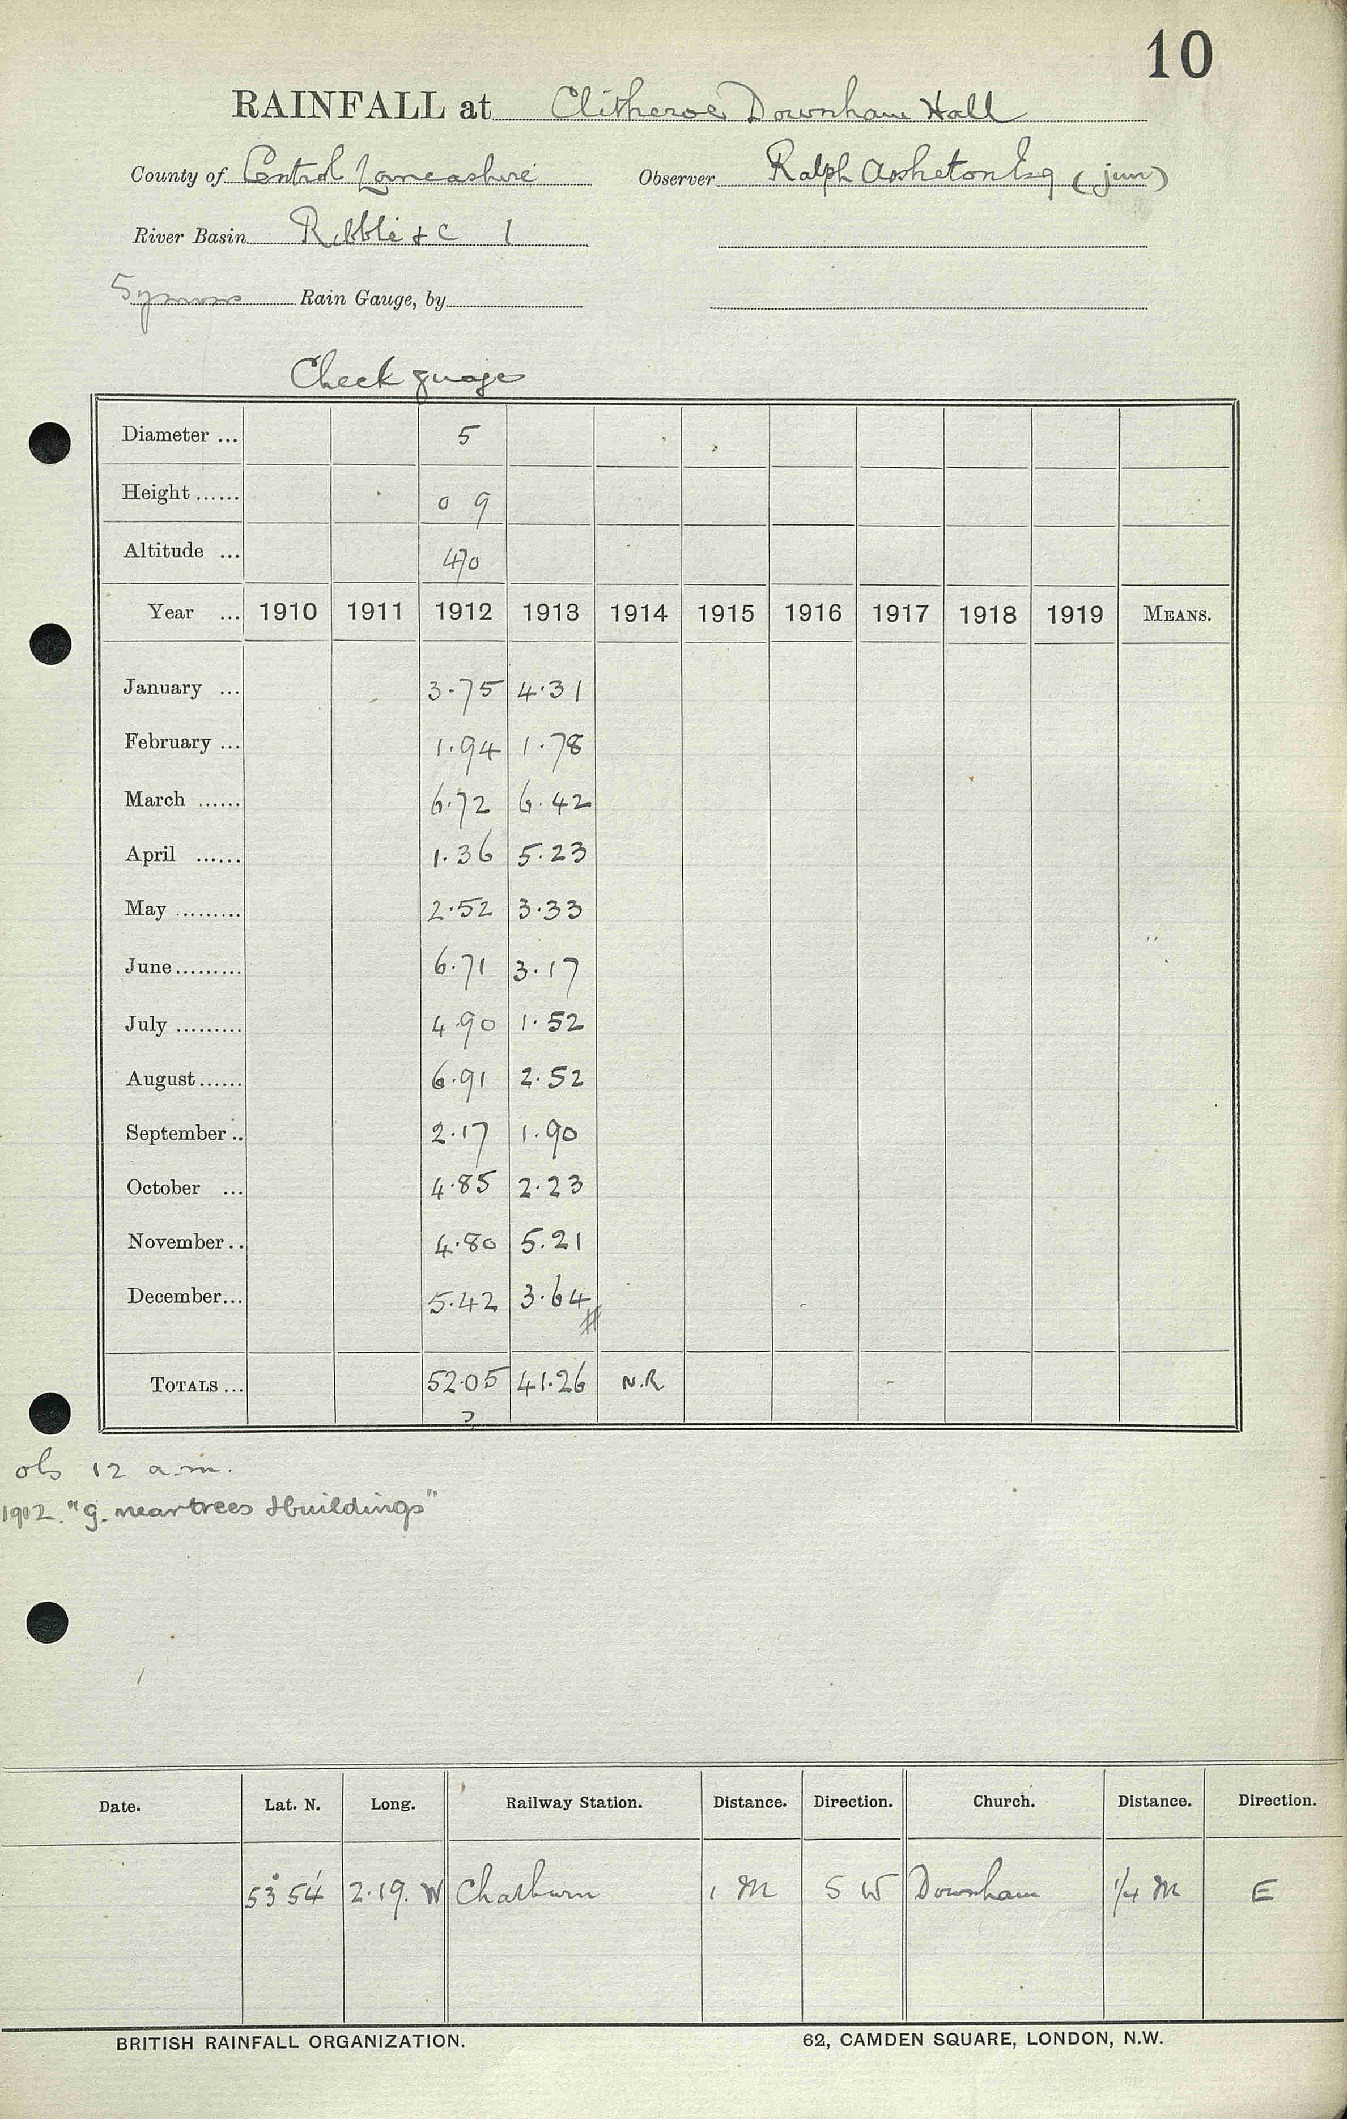 10
RAINFALL at Clitheroe Downham Hall
County of Central Lancashire Observer Ralph Assheton Esq (jun)
River Basin Ribble &c 1
Symons Rain Gauge, by
Check guage
Diameter ... 5
Height ...... 0 9
Altitude ... 470
Year ... 1910 1911 1912 1913 1914 1915 1916 1917 1918 1919 MEANS.
January ... 3.75 4.31
February ... 1.94 1.78
March ...... 6.72 6.42
April ...... 1.36 5.23
May ......... 2.52 3.33
June ......... 6.71 3.17
July ......... 4.90 1.52
August ...... 6.91 2.52
September .. 2.17 1.90
October ... 4.85 2.23
November .. 4.80 5.21
December ... 5.42 3.64
#
TOTALS ... 52.05 41.26 N.R
?
obs 12 a.m.
1912. "g. near trees & buildings"
Date. Lat. N. Long. Railway Station. Distance. Direction. Church. Distance. Direction.
53° 54' 2.19. W Chatburn 1 M S W Downham 1/4 M E
BRITISH RAINFALL ORGANIZATION. 62, CAMDEN SQUARE, LONDON, N.W.